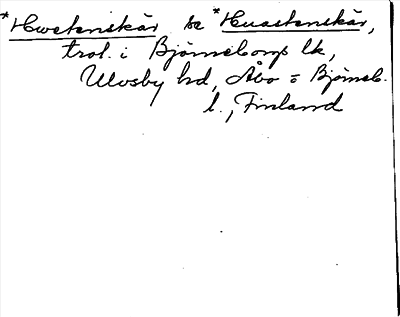 *Hwetenskär se *Huastenskär,
trol. i Björneborgs lk,
Ulvsby hd, Åbo o Björneb.
l., Finland